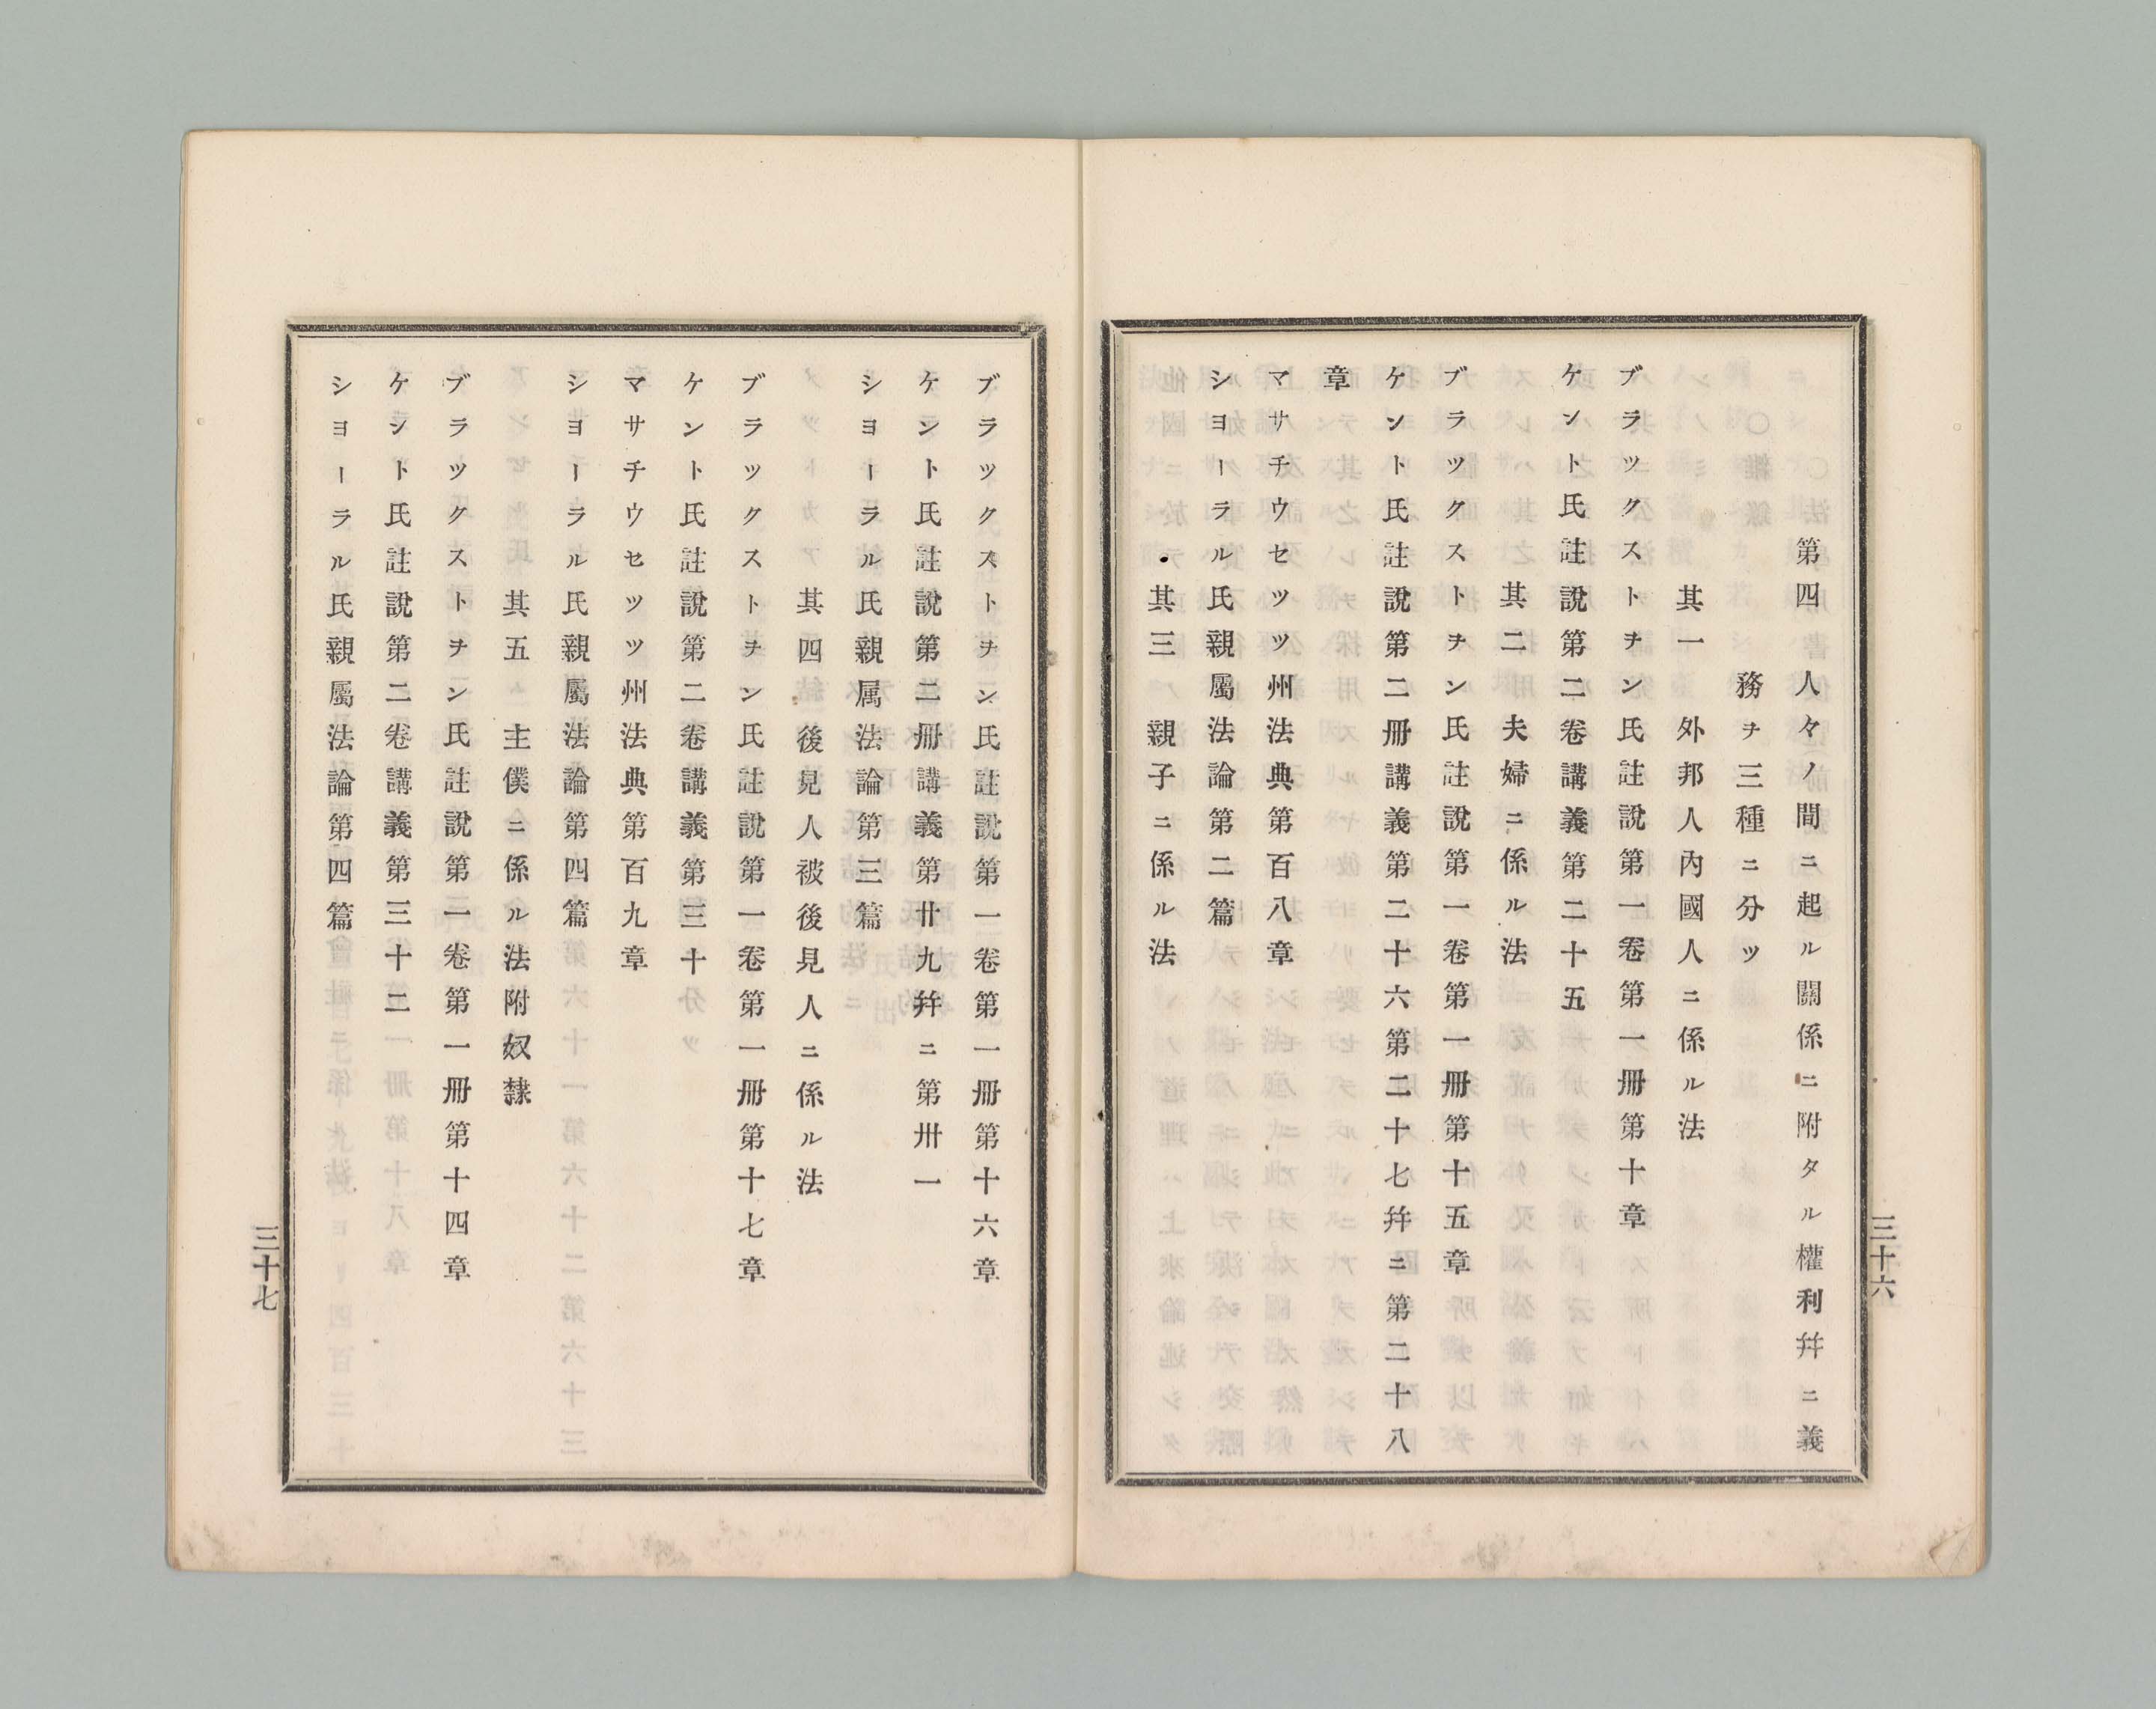 第四人々ノ間ニ起ル關係ニ附タル權利幷ニ義
務ヲ三種ニ分ツ
其一 外邦人內國人ニ係ル法
ブラックストチン氏註說第一卷第一冊第十章
ケント氏註說第二卷講義第二十五
其二 夫婦ニ係ル法
ブラックストチン氏註說第一卷第一冊第十五章
ケント氏註說第二冊講義第二十六第二十七幷ニ第二十八
章
マサチウセッツ州法典第百八章
ショーラル氏親屬法論第二篇
其三 親子ニ係ル法
三十六
ブラックストヲン氏註說第一卷第一冊第十六章
ケント氏註說第二冊講義第廿九幷ニ第卅一
ショーラル氏親属法論第三篇
其四 後見人被後見人ニ係ル法
ブラックストヲン氏註說第一卷第一冊第十七章
ケント氏註說第二卷講義第三十
マサチウセッツ州法典第百九章
ショーラル氏親屬法論第四篇
其五 主僕ニ係ル法附奴隸
ブラックストヲン氏註說第一卷第一冊第十四章
ケント氏註說第二卷講義第三十二
ショーラル氏親屬法論第四篇
三十七